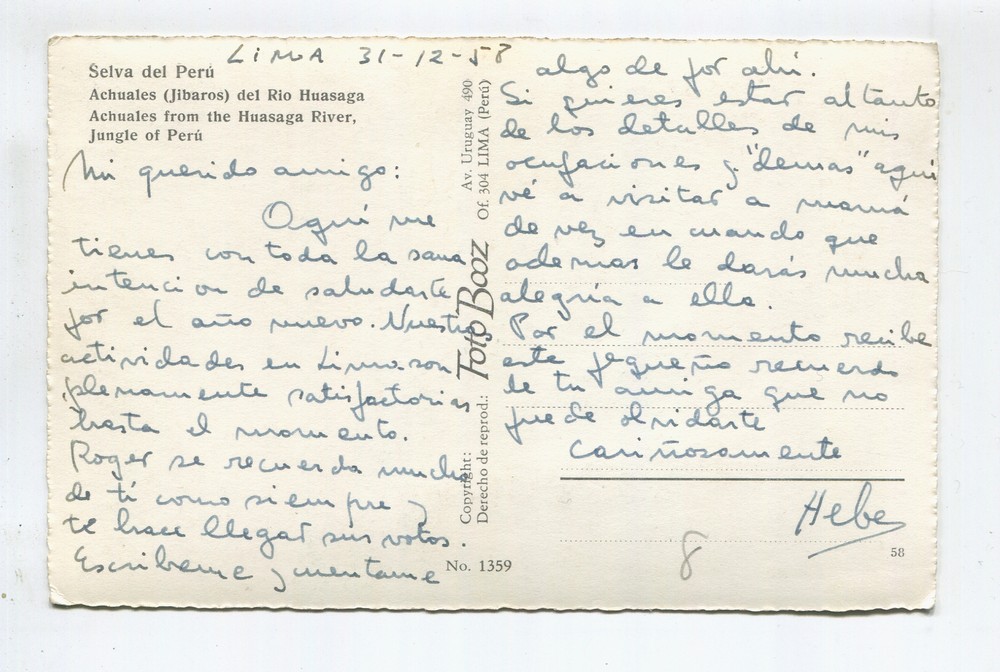 LIMA 31-12-58
Selva del Perú
Achuales (Jibaros) del Rio Huasaga
Achuales from the Huasaga River,
Jungle of Perú
Mi querido amigo:
Aquí me
tienes con toda la sana
intencion de saludarte
por el año nuevo. Nuestras
actividades en Lima son
plenamente satisfactorias
hasta el momento.
Roger se recuerda mucho
de tí como siempre y
te hace llegar sus votos.
Escribeme y cuentame
algo de por ahí.
Si quieres estar al tanto
de los detalles de mis
ocupaciones y "demas" aquí
vé a visitar a mamá
de vez en cuando que
ademas le darás mucha
alegría a ella.
Por el momento recibe
este pequeño recuerdo
de tu amiga que no
puede olvidarte
cariñosamente
Hebe
Copyright: Foto Booz Av. Uruguay 490
Derecho de reprod.: Of. 304 LIMA (Perú)
No. 1359
8
58